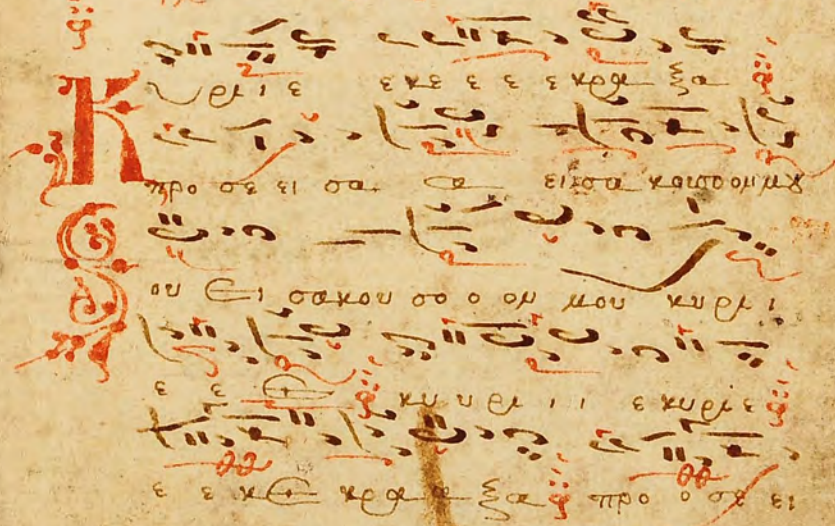 Κυριε εκε ε ε εκραξα
προ σε ει σα α εισα κουσοομμȣ
ου ει σακου σο ο ομ μου κυρι
ε ε ε κυ υ ρι ι ι ε κυριε
ε ε κε κραα ξα προ ο σε ει